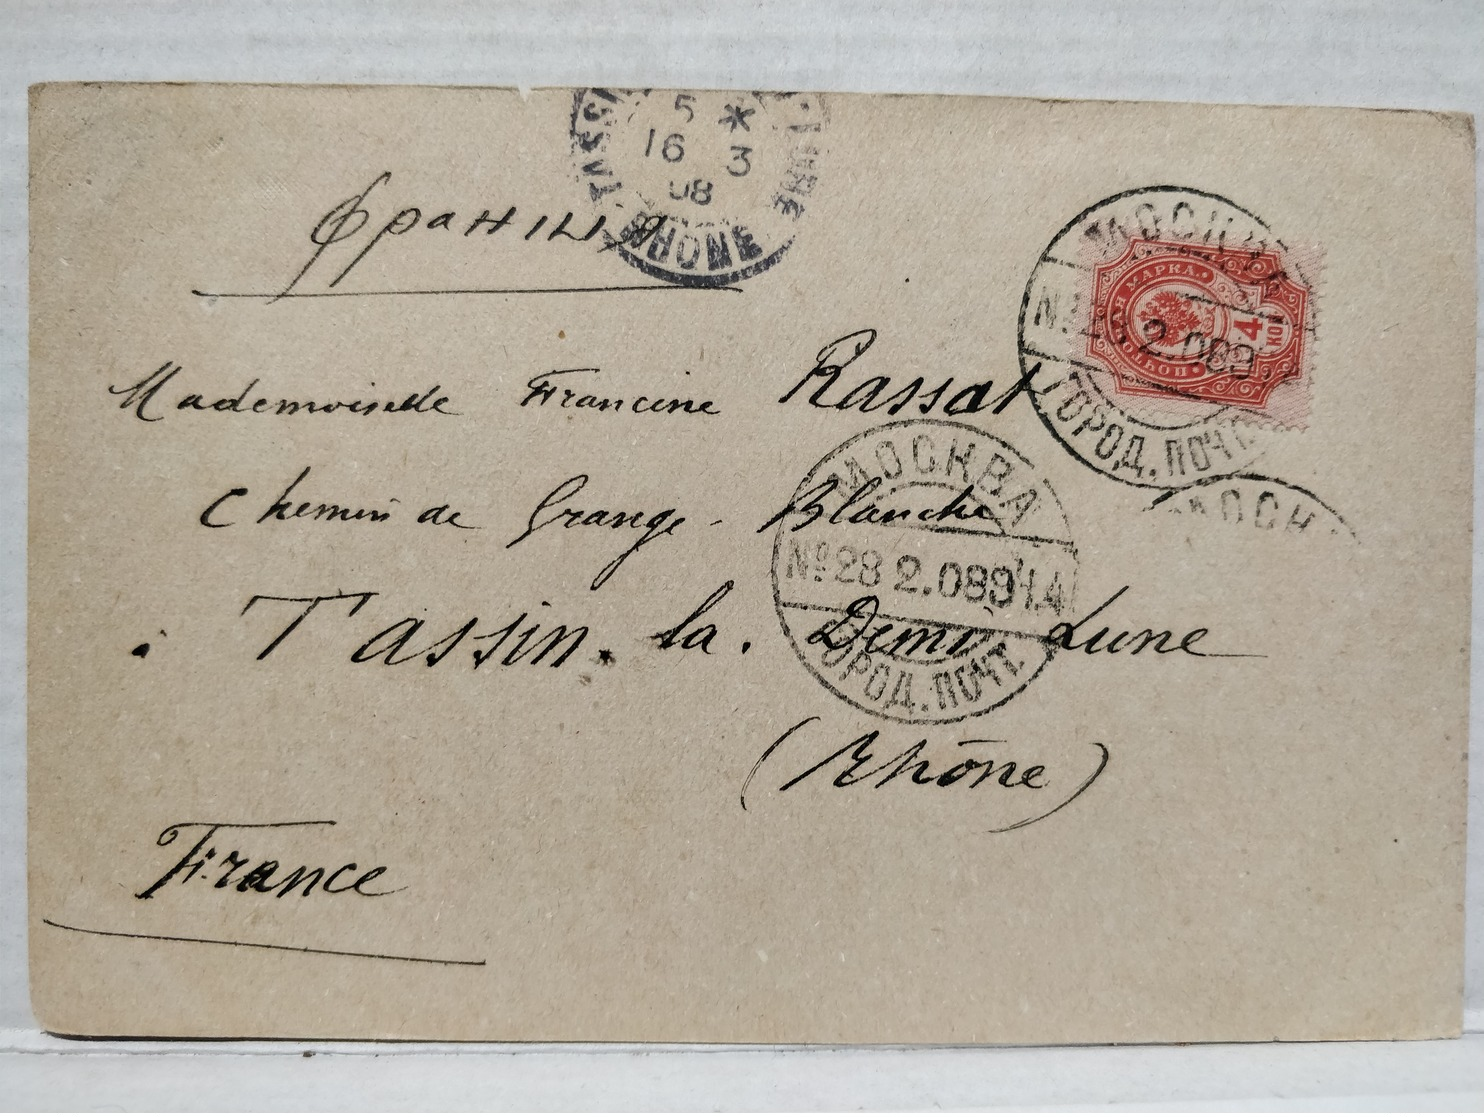 TASSI LUNE
5 *
16 3
08
RHONE
Франція
МОСКВА
№ 28. 2.089
ГОРОД. ПОЧТ.
МАРКА.
4
КОП
Mademoiselle Francine Rassat
Chemin de Grange - Blanche
МОСКВА
№28 2.089Ч.4
ГОРОД. ПОЧТ.
МОСК
Tassin. la. Demi Lune
(Rhône)
France